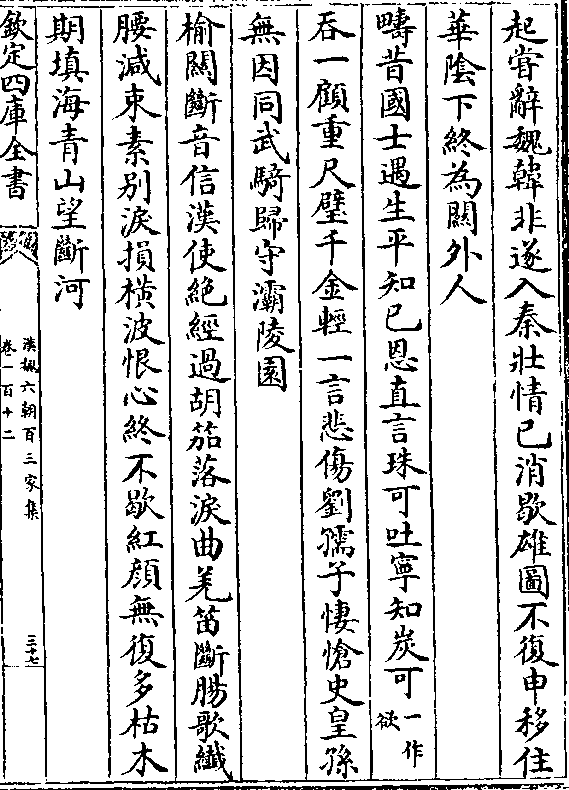 起嘗辭魏韓非遂入秦壯情已消歇雄圖不復申移住
華陰下終為關外人
疇昔國士遇生平知已恩直言珠可吐寧知炭可一作欲
吞一顧重尺璧千金輕一言悲傷劉孺子悽愴史皇孫
無因同武騎歸守灞陵園
榆關斷音信漢使絶經過胡笳落淚曲羌笛斷腸歌纖
腰減束素别淚損横波恨心終不歇紅顔無復多枯木
期填海青山望斷河
欽定四庫全書
漢魏六朝百三家集
卷一百十二
三十七